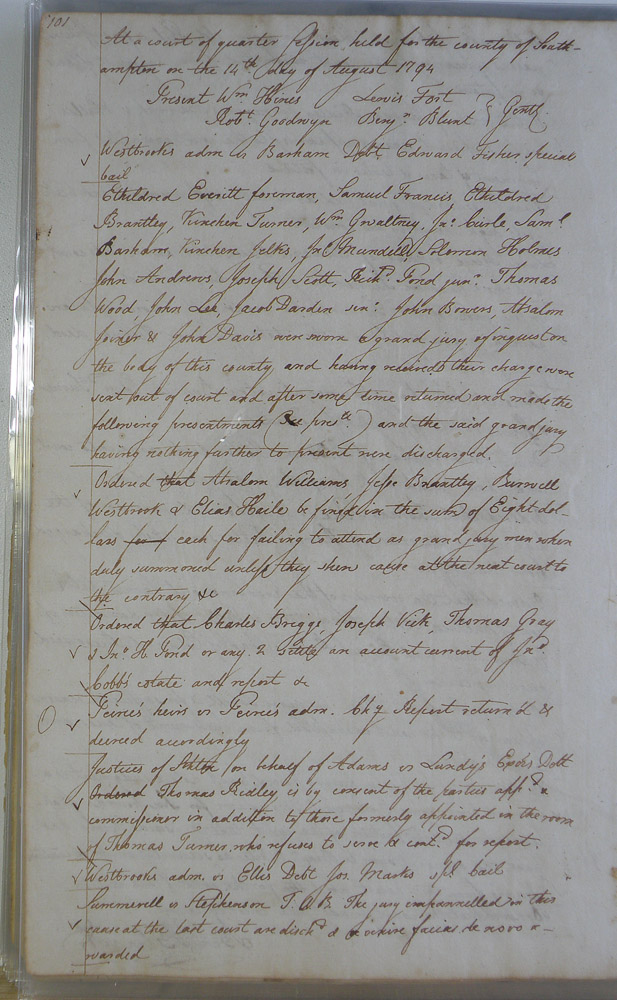 101
At a court of quarter session held for the county of South-
ampton on the 14th day of August 1794
Present Wm Hines Lewis Fort } Gentn.
Robt. Goodwyn Benjn Blunt
Westbrooks adm vs Barham Debt Edward Fisher special
bail
Etheldred Everitt foreman, Samuel Francis, Etheldred
Brantley, Kinchen Turner, Wm Gwaltney, Jno. Curle, Saml.
Barham, Kinchen Jelks, Jno Mundell, Solomon Holmes
John Andrews, Joseph Scott, Richd. Pond junr. Thomas
Wood, John Lee, Jacob Darden senr. John Bowers, Absalom
Joiner & John Davis were sworn a grand jury of inquest on
the body of this county, and having received their charge were
sent out of court and after some time returned and made the
following presentments (See prests.) and the said grand jury
having nothing farther to present were discharged.
Ordered that Absalom Williams Jesse Brantley, Burwell
Westbrook & Elias Haile be fined in the sum of Eight dol-
lars for each for failing to attend as grand jury men when
duly summoned unless they shew cause at the next court to
the contrary &c
Ordered that Charles Briggs Joseph Vick, Thomas Gray
& Jno. H. Pond or any 2 settle an account current of Jno.
Cobb's estate and report &c
Peirce's heirs vs Peirce's adm. Chy Report return'd &
decreed accordingly
Justices of Sthtn on behalf of Adams vs Lundy's Exors Debt
Ordered Thomas Ridley is by consent of the parties appd. a
commissioner in addition to those formerly appointed in the room
of Thomas Turner, who refuses to serve & contd. for report.
Westbrooks adm. vs Ellis Debt Jos. Marks spl bail
Summerell vs Stephenson T.A.B. The jury impannelled in this
cause at the last court are dischd & a venire facias de novo a-
warded